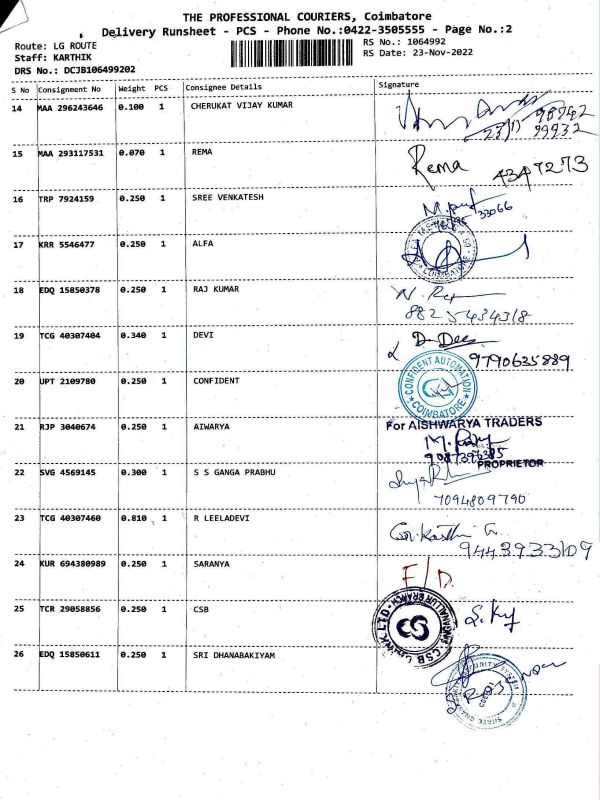 THE PROFESSIONAL COURIERS, Coimbatore
Delivery Runsheet - PCS - Phone No.:0422-3505555 - Page No.:2
Route: LG ROUTE
RS No.: 1064992
Staff: KARTHIK
RS Date: 23-Nov-2022
DRS No.: DCJB106499202
S No Consignment No Weight PCS Consignee Details Signature
14 MAA 296243646 0.100 1 CHERUKAT VIJAY KUMAR
15 MAA 293117531 0.070 1 REMA Rema
16 TRP 7924159 0.250 1 SREE VENKATESH
17 KRR 5546477 0.250 1 ALFA
COIMBATORE
18 EDQ 15850378 0.250 1 RAJ KUMAR
8825434318
19 TCG 40307404 0.340 1 DEVI
9790635889
20 UPT 2109780 0.250 1 CONFIDENT CONFIDENT AUTOMATION
COIMBATORE
21 RJP 3040674 0.250 1 AIWARYA For AISHWARYA TRADERS
PROPRIETOR
22 SVG 4569145 0.300 1 S S GANGA PRABHU
7094809790
23 TCG 40307460 0.810 1 R LEELADEVI
9443933109
24 KUR 694380989 0.250 1 SARANYA
25 TCR 29058856 0.250 1 CSB
CSB BANK LTD
26 EDQ 15850611 0.250 1 SRI DHANABAKIYAM